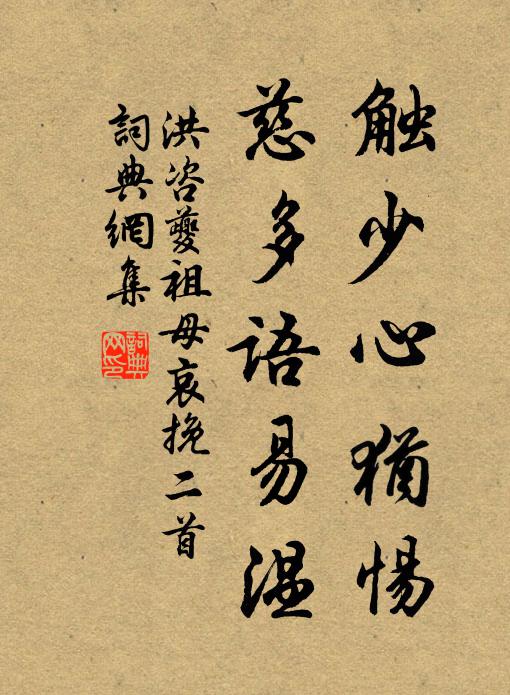 触少心猶惕
慈多語易温
洪咨夔祖母哀挽二首
詞典網集
詞典網印